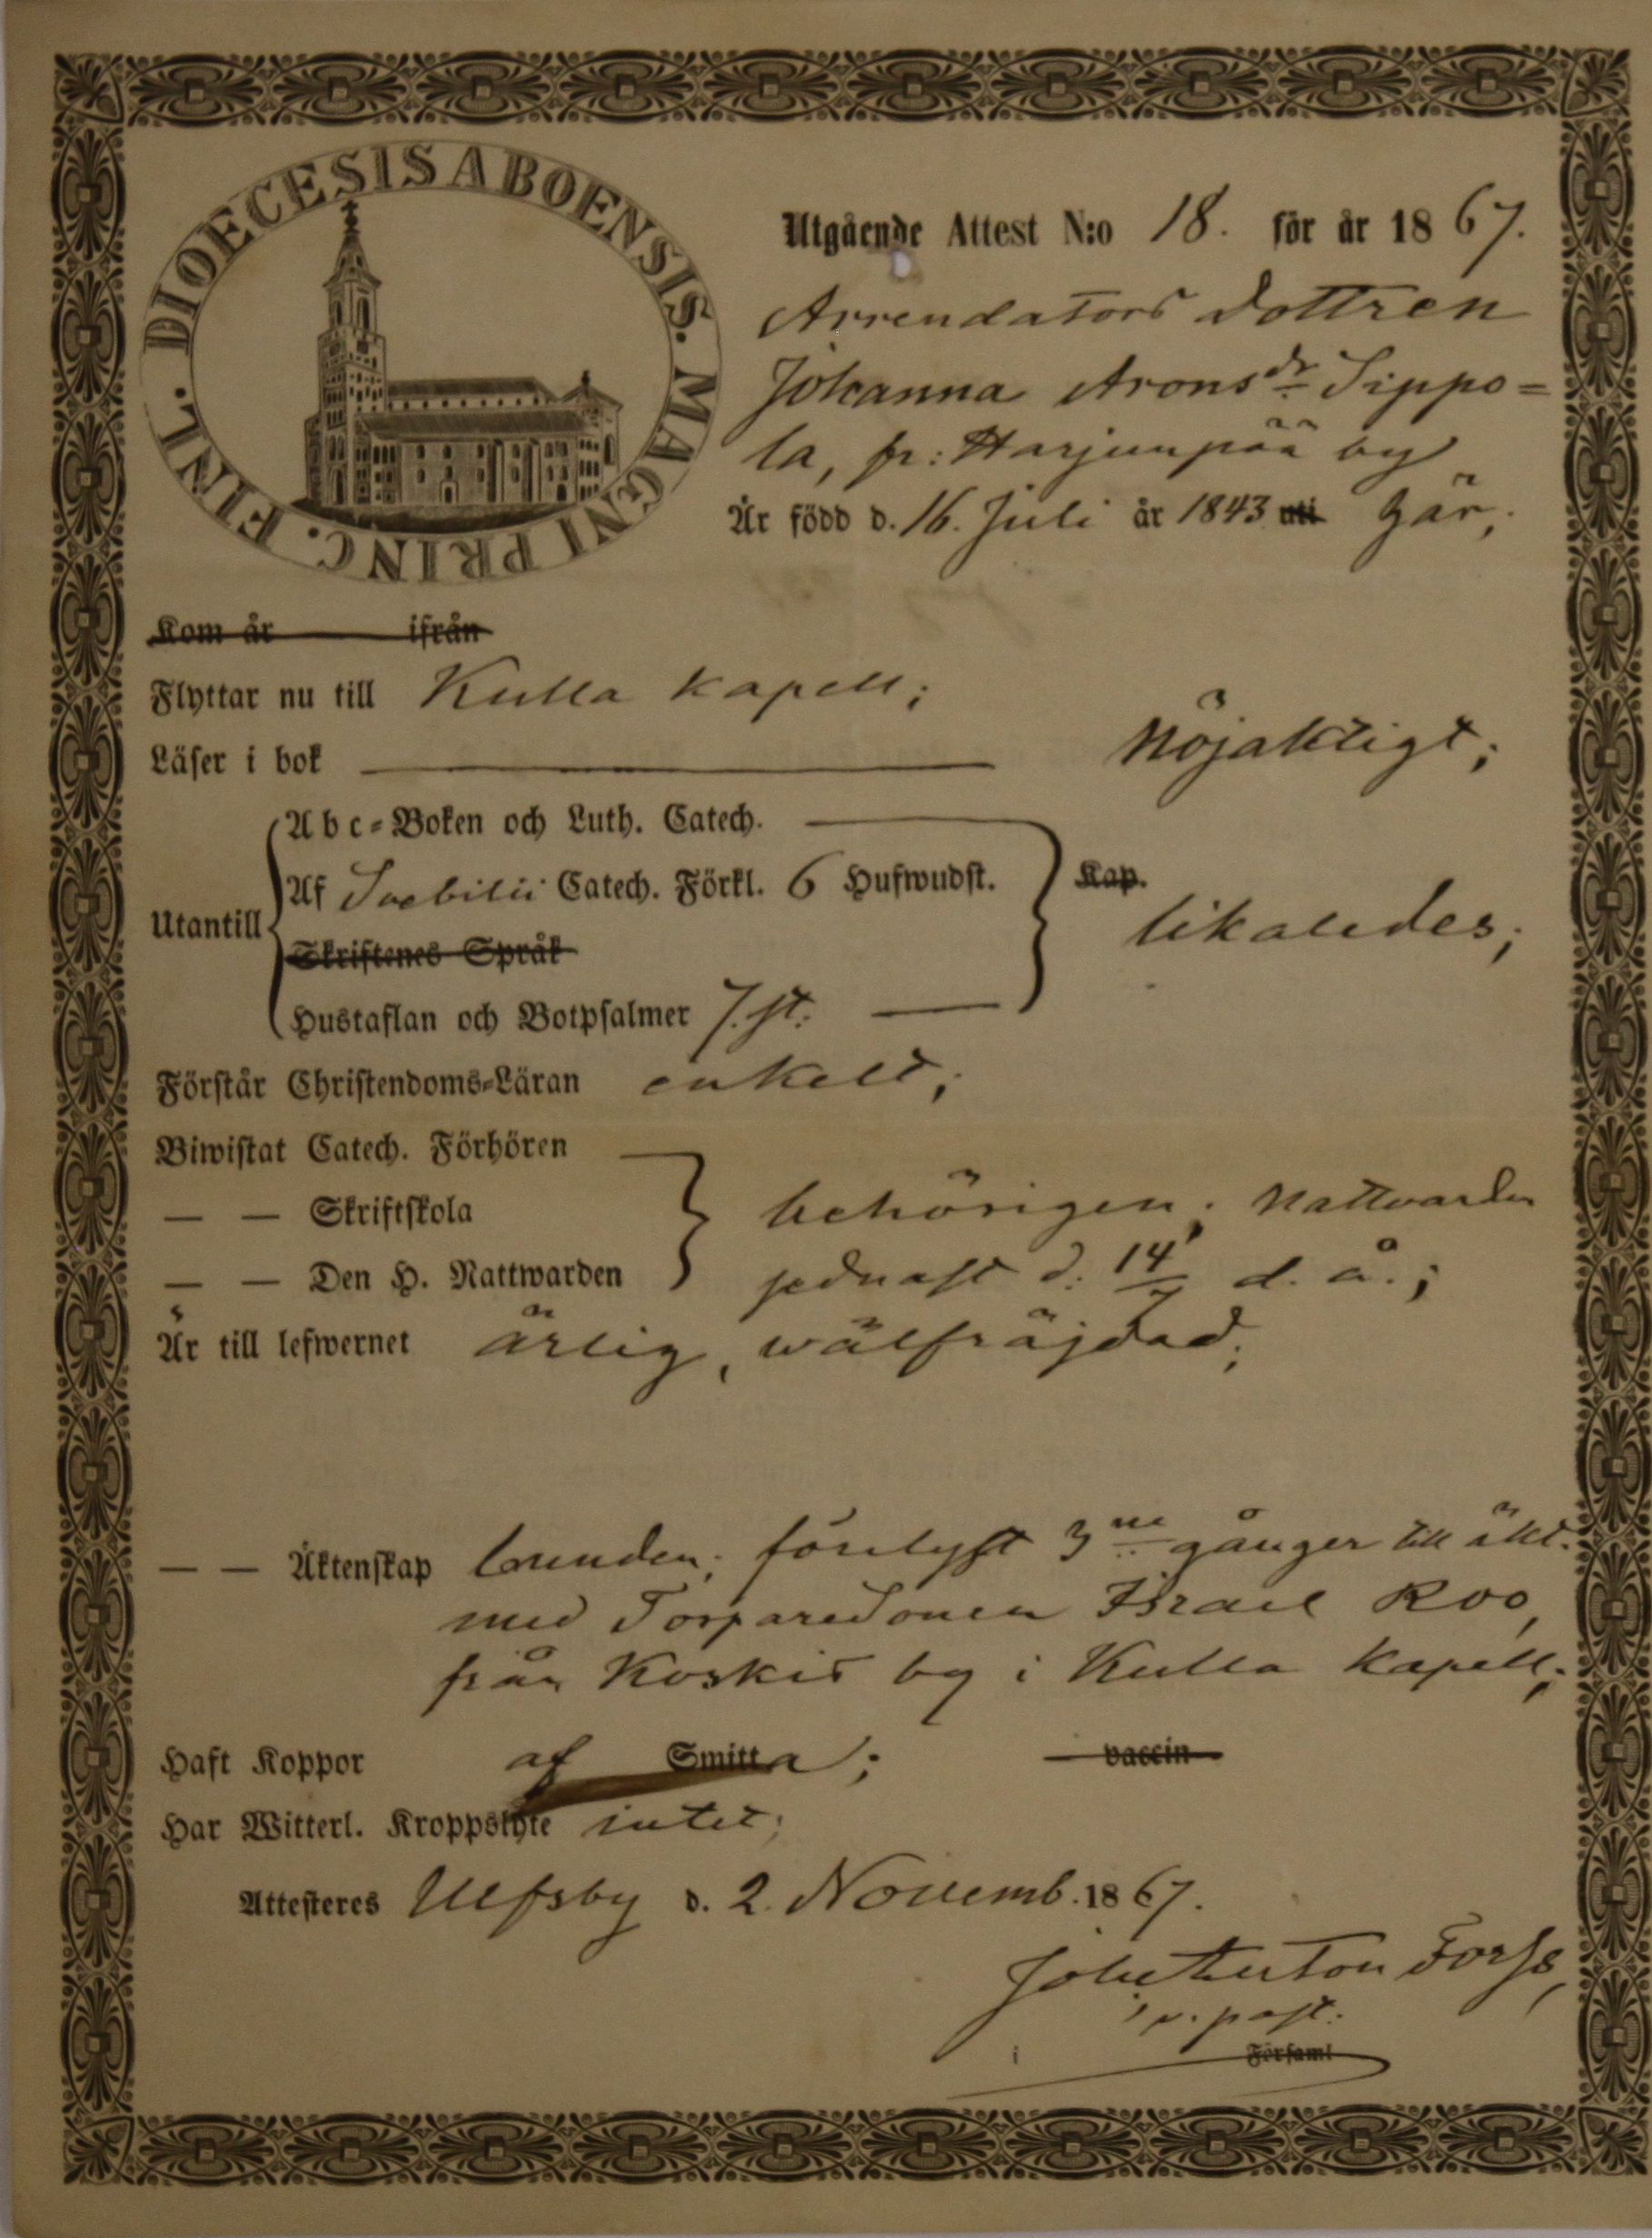 DIOECESIS ABOENSIS. MAGNI PRINC. FINL.
Utgående Attest N:o 18. för år 1867.
Arrendators dottren
Johanna Aronsdr Sippo=
la, fr: Harjunpää by
Är född d. 16. Juli år 1843 uti här;
Kom år ifrån
Flyttar nu till Kulla Kapell;
Läser i bok Nöjaktigt;
Abc=Boken och Luth. Catech.
Utantill
Af Svebilii Catech. Förkl. 6 Hufwudst. Kap.
likaledes;
Skriftenes Språk
Hustaflan och Botpsalmer 7. st:
Förstår Christendoms=Läran enkelt;
Biwistat Catech. Förhören
— — Skriftskola behörigen; Nattvarden
— — Den H. Nattwarden sednast d: 14/7 d. å.;
Är till lefwernet ärlig, wälfräjdad;
— — Äktenskap bunden; förelyst 3ne gånger till äkt.
med Torparesonen Israel Roo,
från Koskis by i Kulla Kapell;
Haft Koppor af Smitta; vaccin
Har Witterl. Kroppslyte intet;
Attesteres Ulfsby d. 2. Novemb. 1867.
Forss,
v. past.
i Församl